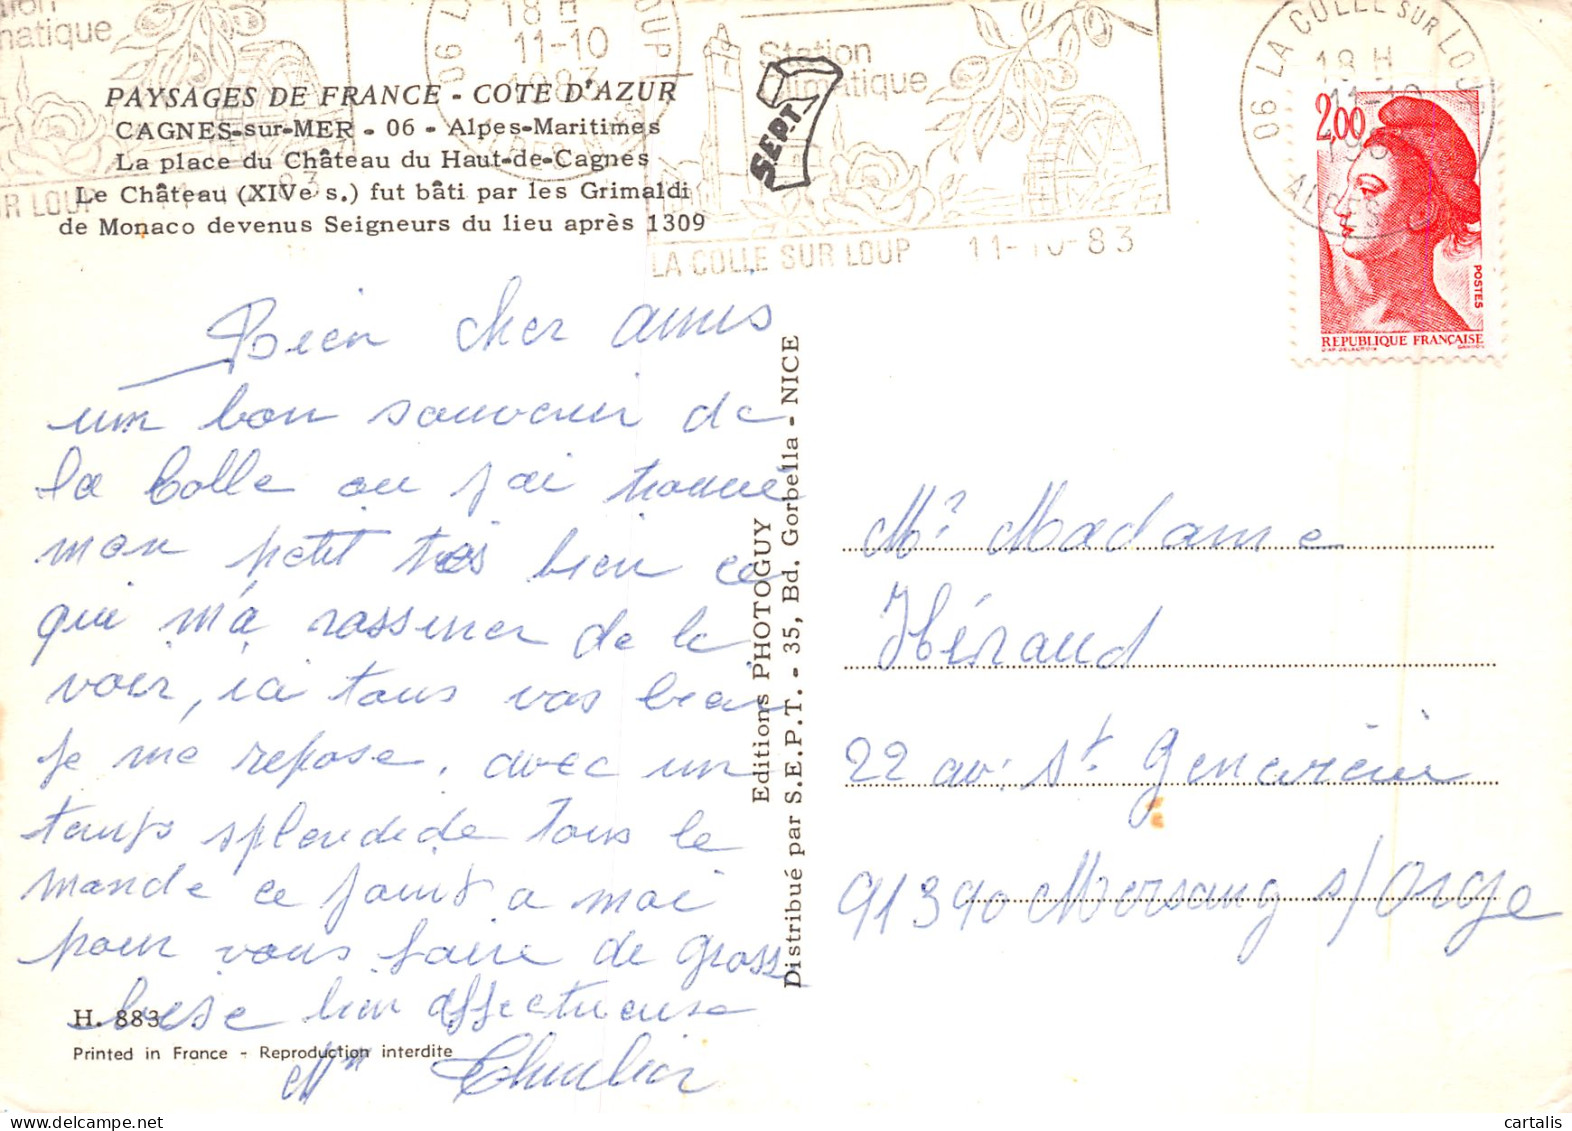 Station
matique
18 H
11-10
1983
Station
Climatique
06 LA COLLE SUR LOUP
18 H
11-10
1983
ALPES
PAYSAGES DE FRANCE - COTE D'AZUR
CAGNES-sur-MER - 06 - Alpes-Maritimes
La place du Château du Haut-de-Cagnes
Le Château (XIVe s.) fut bâti par les Grimaldi
de Monaco devenus Seigneurs du lieu après 1309
SEPT
UR LOUP
LA COLLE SUR LOUP 11-10-83
2,00
POSTES
REPUBLIQUE FRANÇAISE
Bien cher amis
un bon souvenir de
la Colle ou j'ai trouvé
mon petit très bien ce
qui m'a rassurer de le
voir, ici tous vas bien
je me repose, avec un
temps splendide tous le
monde ce joint a moi
pour vous faire de gross
bise bien affectueuse
Mm
Editions PHOTOGUY
Distribué par S.E.P.T. - 35, Bd. Gorbella - NICE
Mr Madame
Héraud
22 av: St Geneviève
91390 Morsang s/Orge
H. 883
Printed in France - Reproduction interdite
cartalis